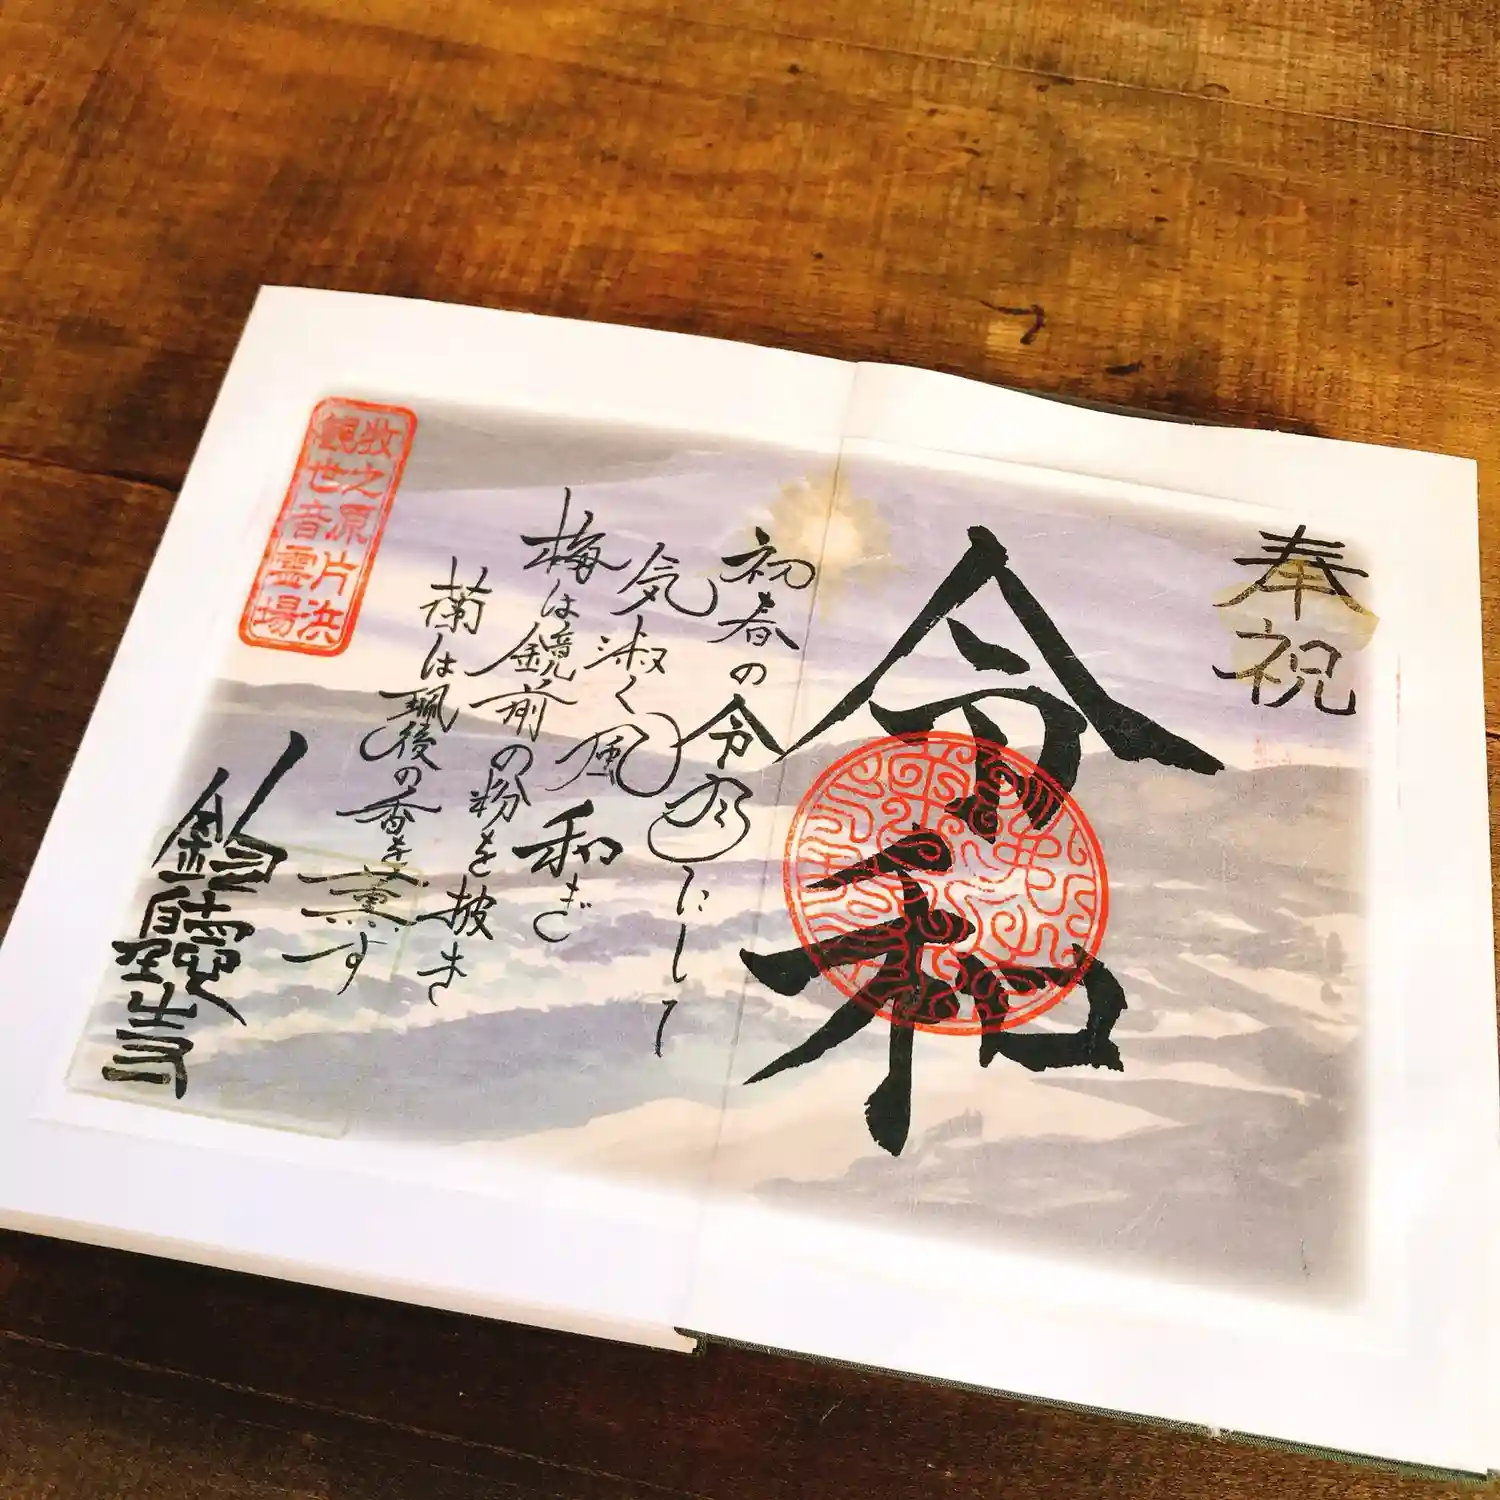 奉祝
令和
初春の令月にして
気淑く風和ぎ
梅は鏡前の粉を披き
蘭は珮後の香を薫す
牧之原片浜
観世音霊場